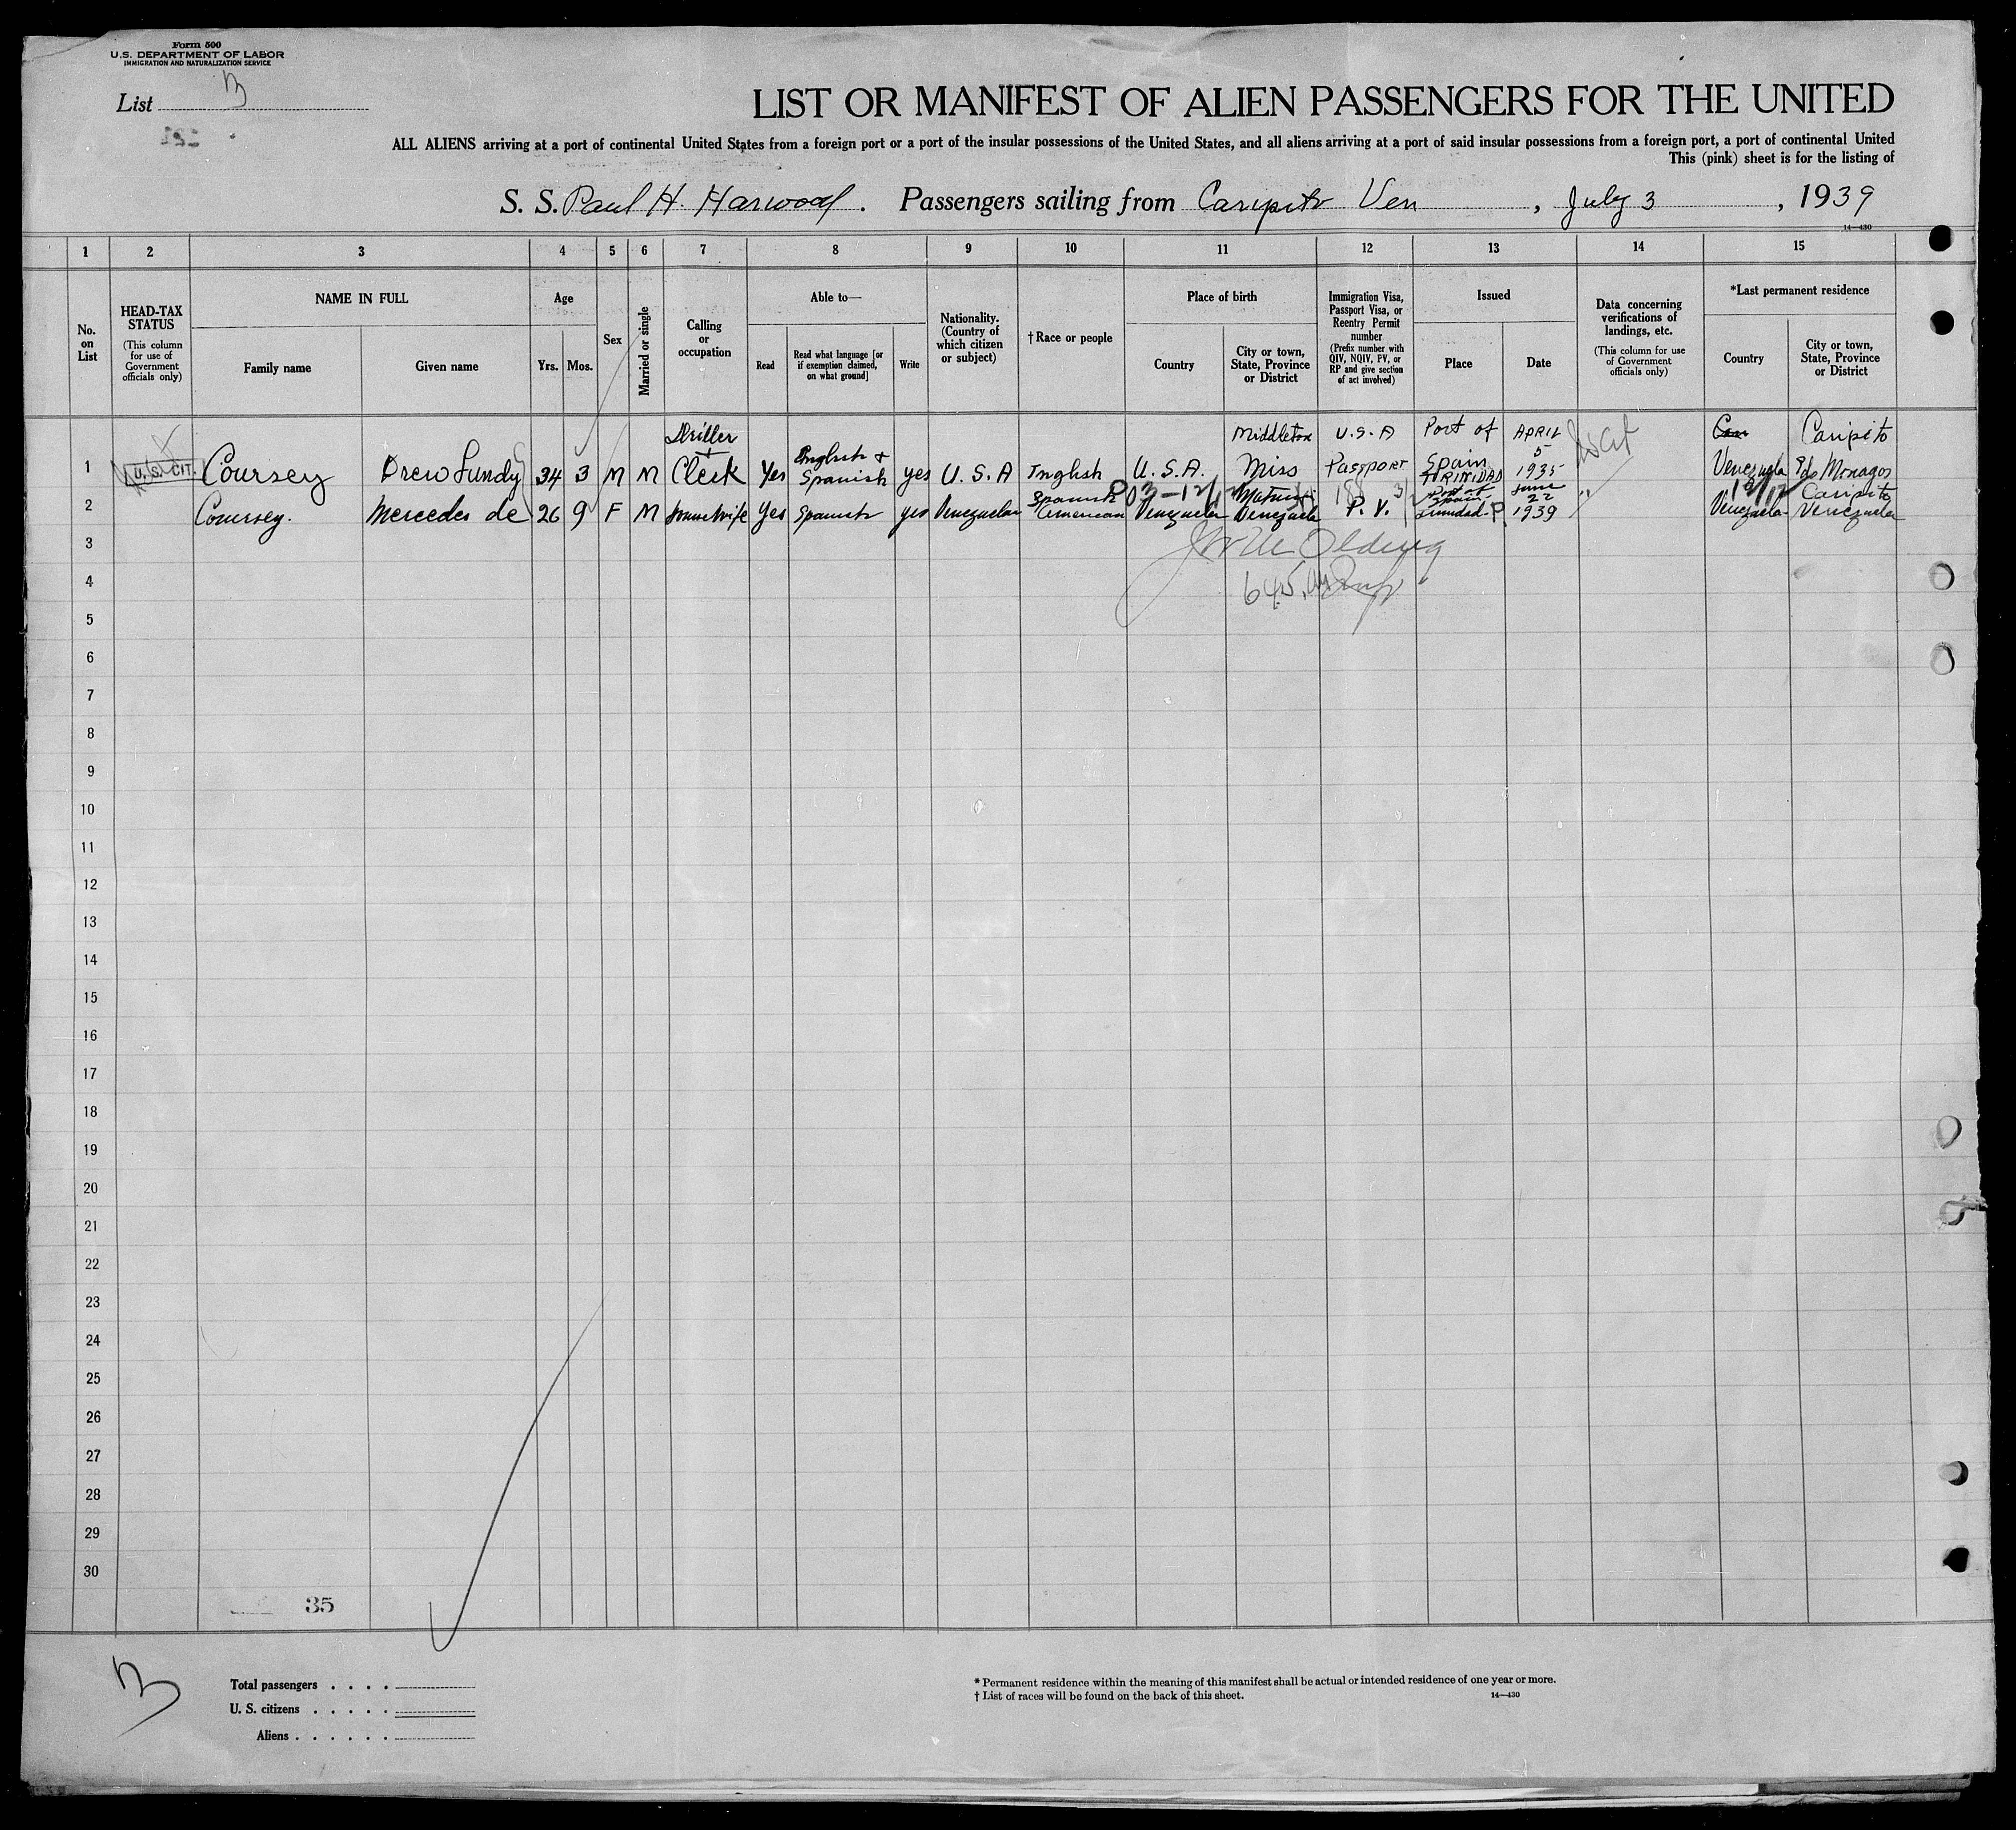 Form 500
U.S. DEPARTMENT OF LABOR
IMMIGRATION AND NATURALIZATION SERVICE
List 3
LIST OR MANIFEST OF ALIEN PASSENGERS FOR THE UNITED
ALL ALIENS arriving at a port of continental United States from a foreign port or a port of the insular possessions of the United States, and all aliens arriving at a port of said insular possessions from a foreign port, a port of continental United
This (pink) sheet is for the listing of
S. S. Paul H. Harwood. Passengers sailing from Caripito Ven, July 3, 1939
14—430
1 2 3 4 5 6 7 8 9 10 11 12 13 14 15
No. on List
HEAD-TAX STATUS
(This column for use of Government officials only)
NAME IN FULL
Family name
Given name
Age
Yrs. Mos.
Sex
Married or single
Calling or occupation
Able to—
Read
Read what language [or if exemption claimed, on what ground]
Write
Nationality. (Country of which citizen or subject)
†Race or people
Place of birth
Country
City or town, State, Province or District
Immigration Visa, Passport Visa, or Reentry Permit number
(Prefix number with QIV, NQIV, PV, or RP and give section of act involved)
Issued
Place
Date
Data concerning verifications of landings, etc.
(This column for use of Government officials only)
*Last permanent residence
Country
City or town, State, Province or District
1 U.S. CIT. Coursey Drew Lundy 34 3 M M Driller + Clerk Yes English + Spanish yes U.S.A English U.S.A. Middleton Miss U.S.A Passport Port of Spain TRINIDAD APRIL 5 1935 Venezuela Caripito Edo Monagas
2 Coursey. Mercedes de 26 9 F M Housewife Yes Spanish yes Venezuelan Spanish American Venezuela Maturin Venezuela P.V. Port of Spain Trinidad June 22 1939 " Venezuela Caripito Venezuela
3
4
5
6
7
8
9
10
11
12
13
14
15
16
17
18
19
20
21
22
23
24
25
26
27
28
29
30
35
3
Total passengers
U. S. citizens
Aliens
* Permanent residence within the meaning of this manifest shall be actual or intended residence of one year or more.
† List of races will be found on the back of this sheet.
14—430